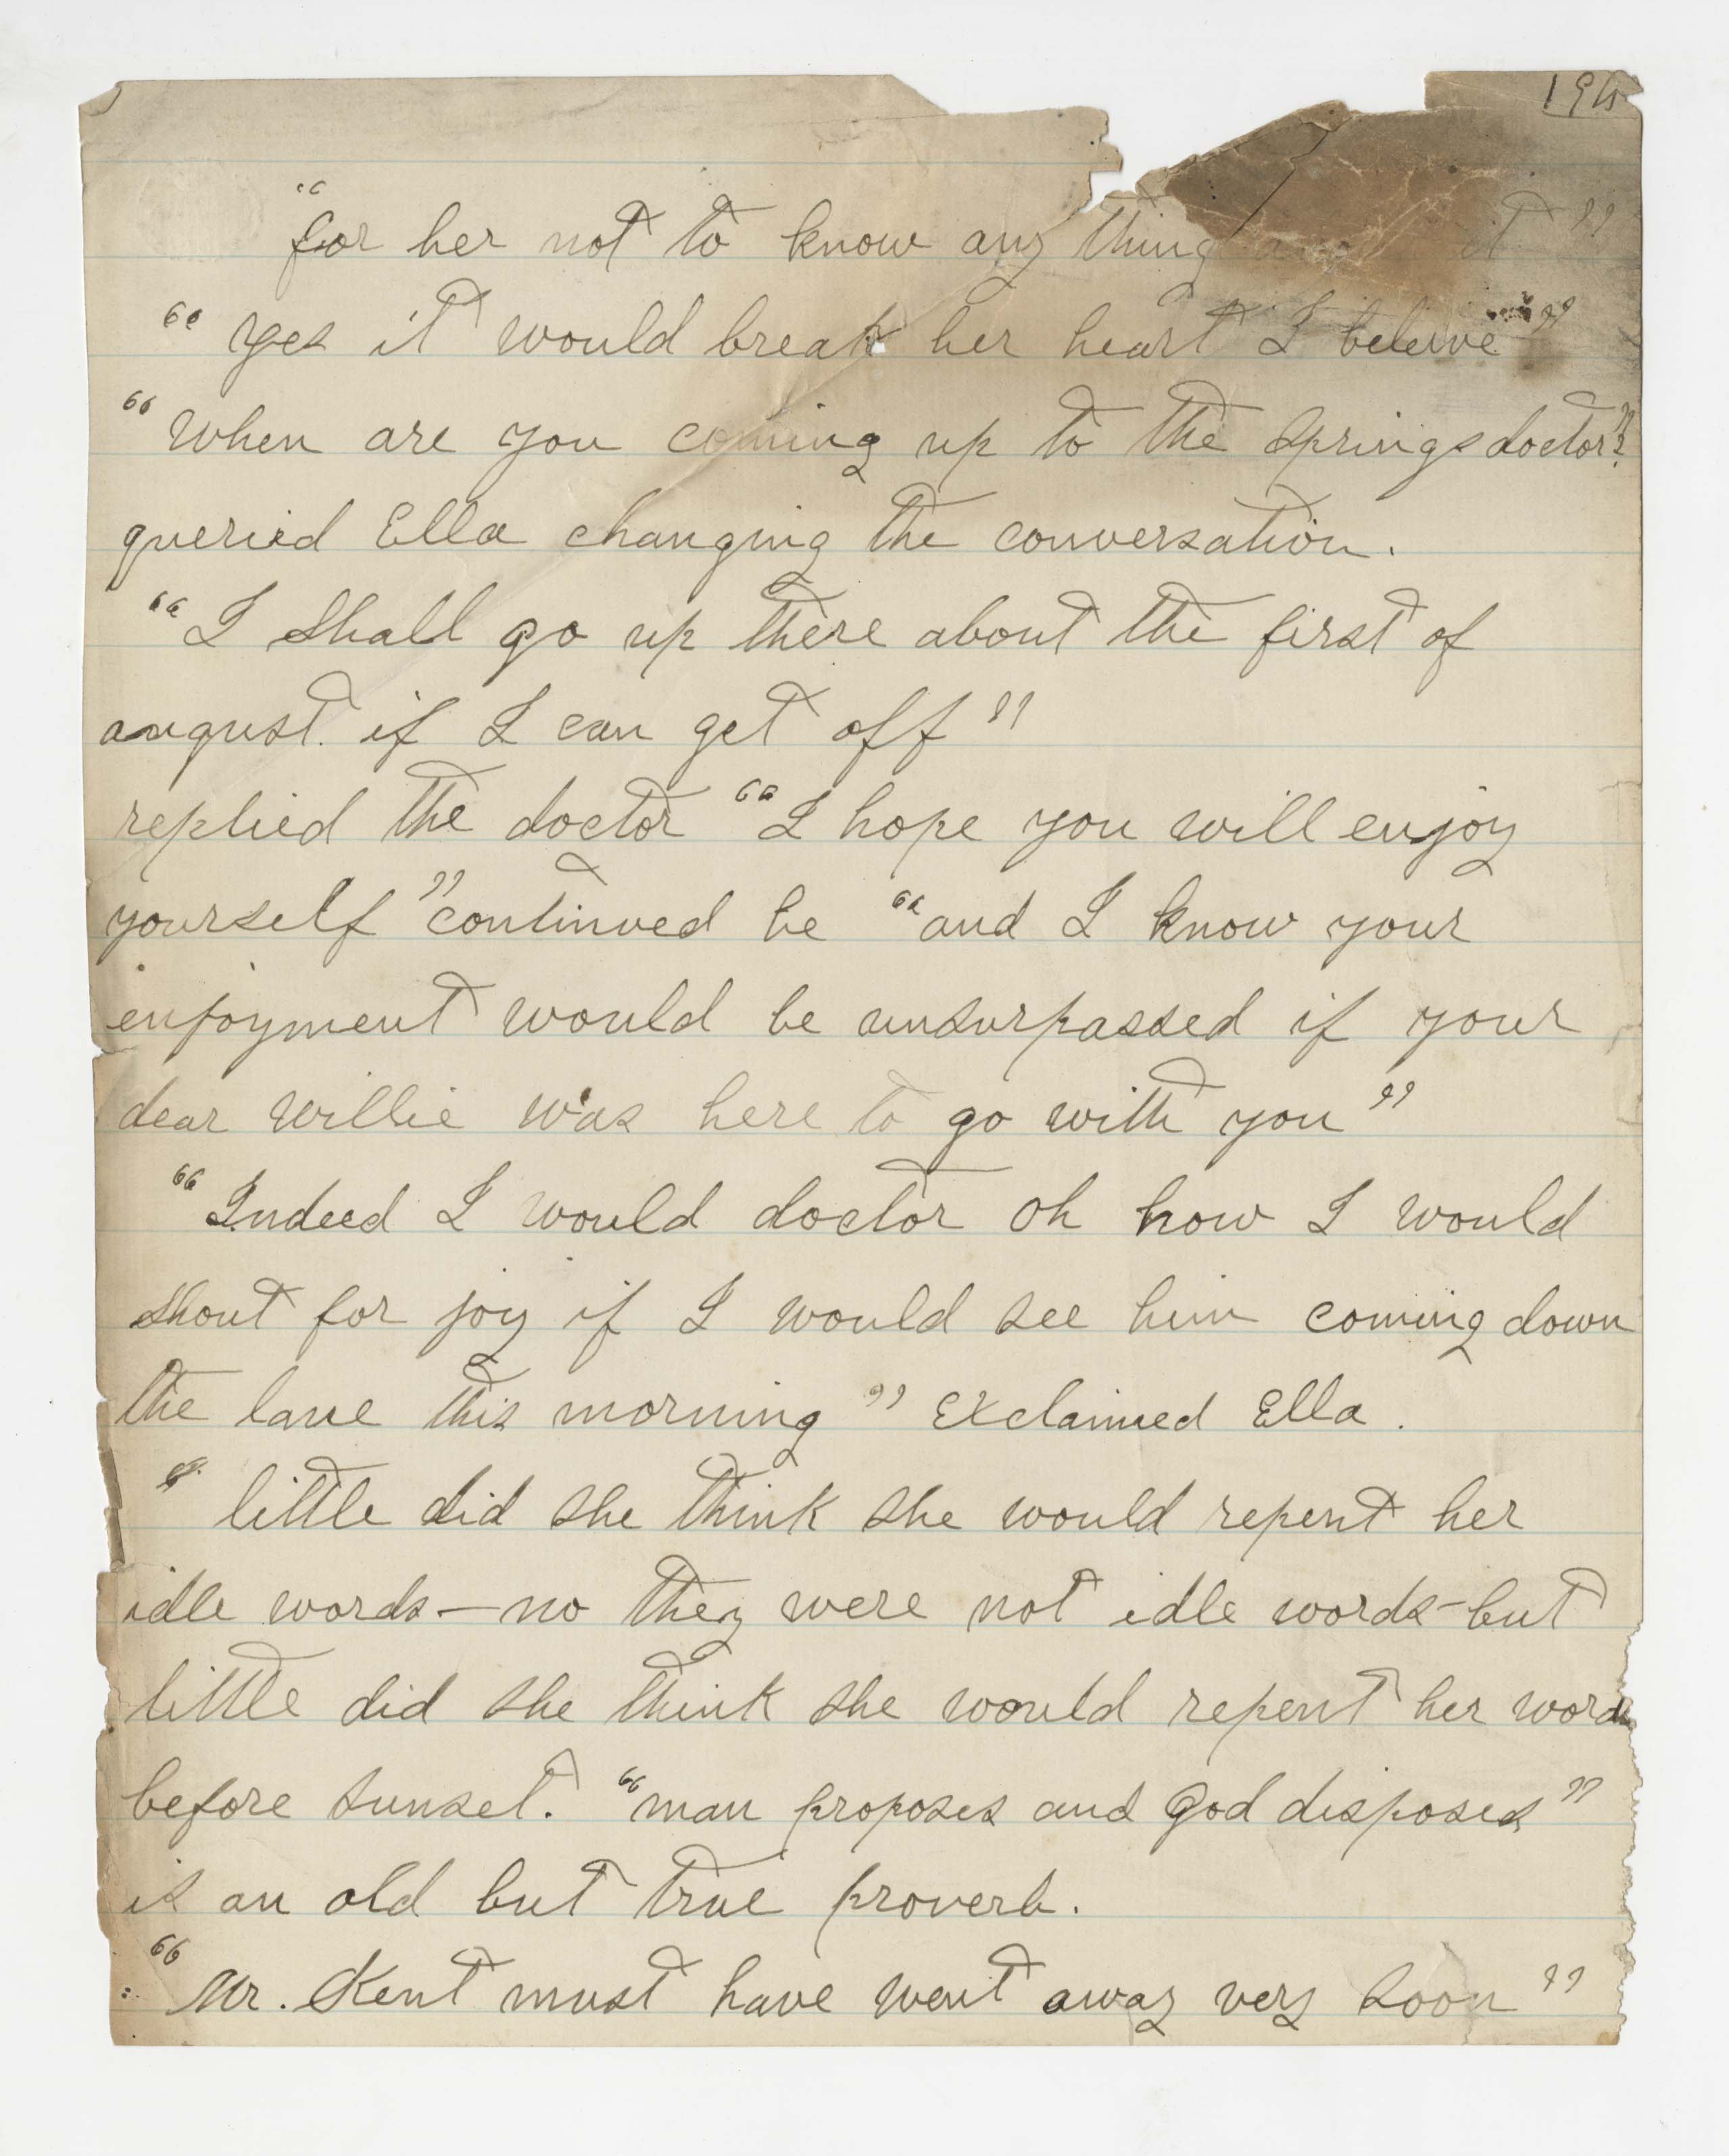 "for her not to know any thing it"
"yes it would break her heart I beleive"
"When are you coming up to the springs doctor"?
queried Ella changing the conversation.
"I shall go up there about the first of
august. if I can get off"
replied the doctor "I hope you will enjoy
yourself" continued he "and I know your
enjoyment would be unsurpassed if your
dear willie was here to go with you"
"Indeed I would doctor oh how I would
shout for joy if I would see him coming down
the lane this morning" exclaimed Ella.
little did she think she would repent her
idle words—no they were not idle words—but
little did she think she would repent her words
before sunset. "man proposes and God disposes"
is an old but true proverb.
"Mr. Kent must have went away very soon"